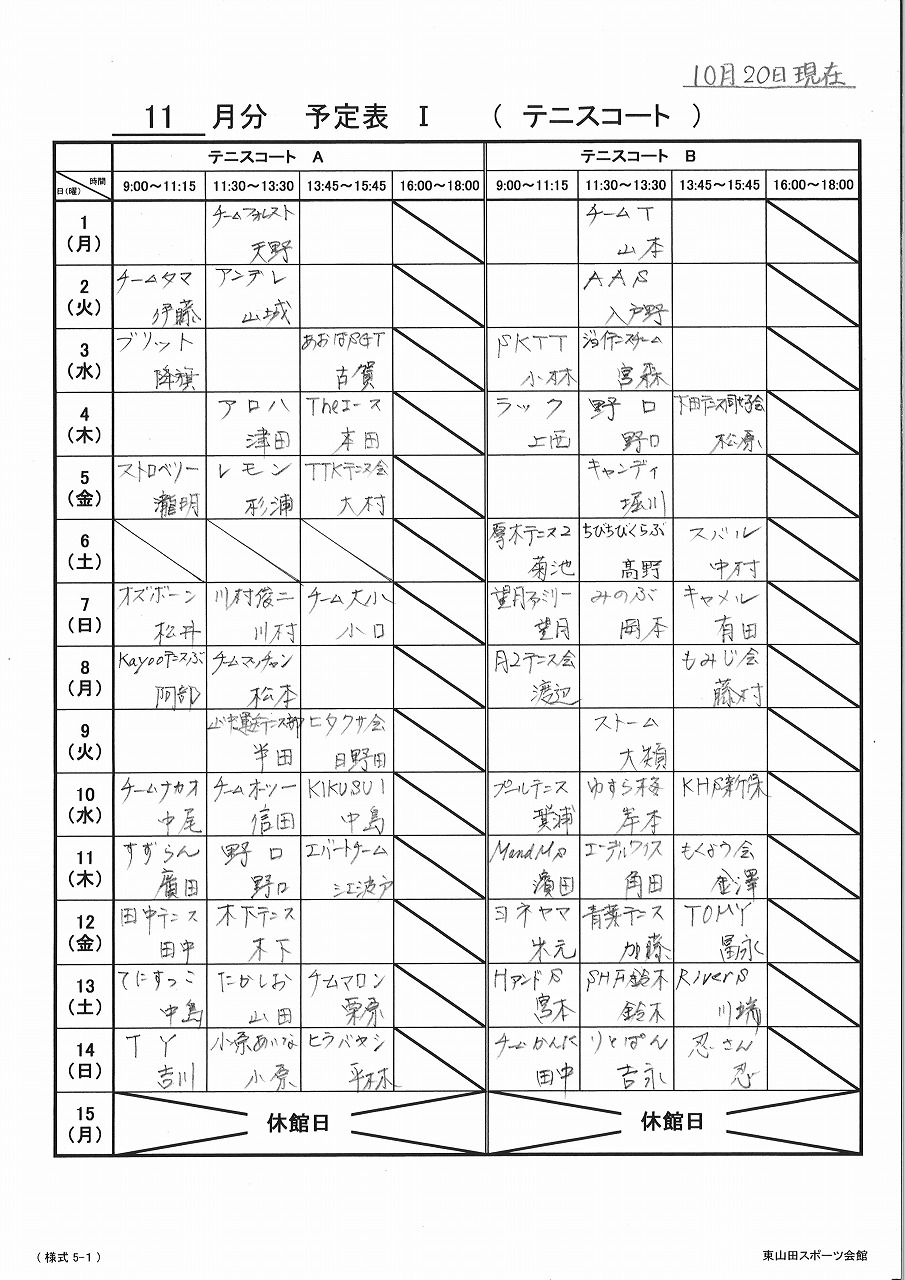 10月20日現在
11 月分 予定表 Ⅰ ( テニスコート )
テニスコート A テニスコート B
時間
日(曜)
9:00～11:15 11:30～13:30 13:45～15:45 16:00～18:00 9:00～11:15 11:30～13:30 13:45～15:45 16:00～18:00
1 チームフォレスト チームT
(月) 天野 山本
2 チームタマ アンデレ AAS
(火) 伊藤 山城 入戸野
3 ブリット SKTT
(水) 降旗 古賀 小林 宮森
4 アロハ Theエース ラック 野口 下田テニス同好会
(木) 津田 本田 上西 野口 松原
5 ストロベリー レモン TTKテニス会 キャンディ
(金) 瀧明 杉浦 大村 堀川
6 厚木テニス2 ちびちびくらぶ スバル
(土) 菊池 高野 中村
7 オズボーン 川村俊二 チーム大小 望月ファミリー みのぶ キャメル
(日) 松井 川村 小口 望月 岡本 有田
8 Kayooテニスぶ チームマッチャン 月2テニス会 もみじ会
(月) 阿部 松本 渡辺 藤村
9 ヒタクサ会 ストーム
(火) 半田 日野田 大類
10 チームナカオ チームホーソー KIKUSUI プールテニス ゆすら梅 KHS新保
(水) 中尾 信田 中島 箕浦 岸本
11 すずらん 野口 エバートチーム MandMs エーデルワイス もくよう会
(木) 廣田 野口 江波戸 濱田 角田 金澤
12 田中テニス 木下テニス ヨネヤマ 青葉テニス TOMY
(金) 田中 木下 米元 加藤 冨永
13 てにすっこ たかしお チームマロン HアンドS SHF鈴木 RiverS
(土) 中島 山田 栗原 宮本 鈴木 川端
14 TY 小原あいな ヒラバヤシ チームかんに りとぱん 忍さん
(日) 吉川 小原 平林 田中 吉永 忍
15 休館日 休館日
(月)
(様式 5-1) 東山田スポーツ会館